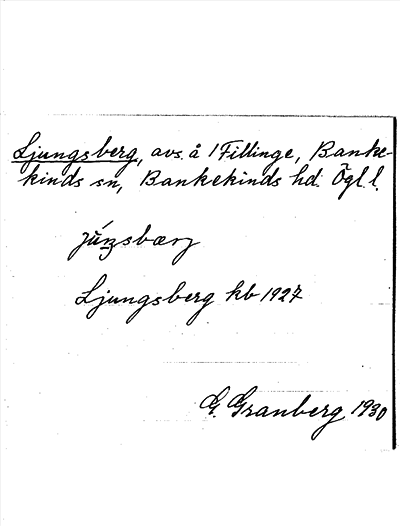 Ljungsberg, avs. å 1 Fillinge, Banke-
kinds sn, Bankekinds hd. Ögl. l.
Ljungsberg kb 1927
G. Granberg 1930